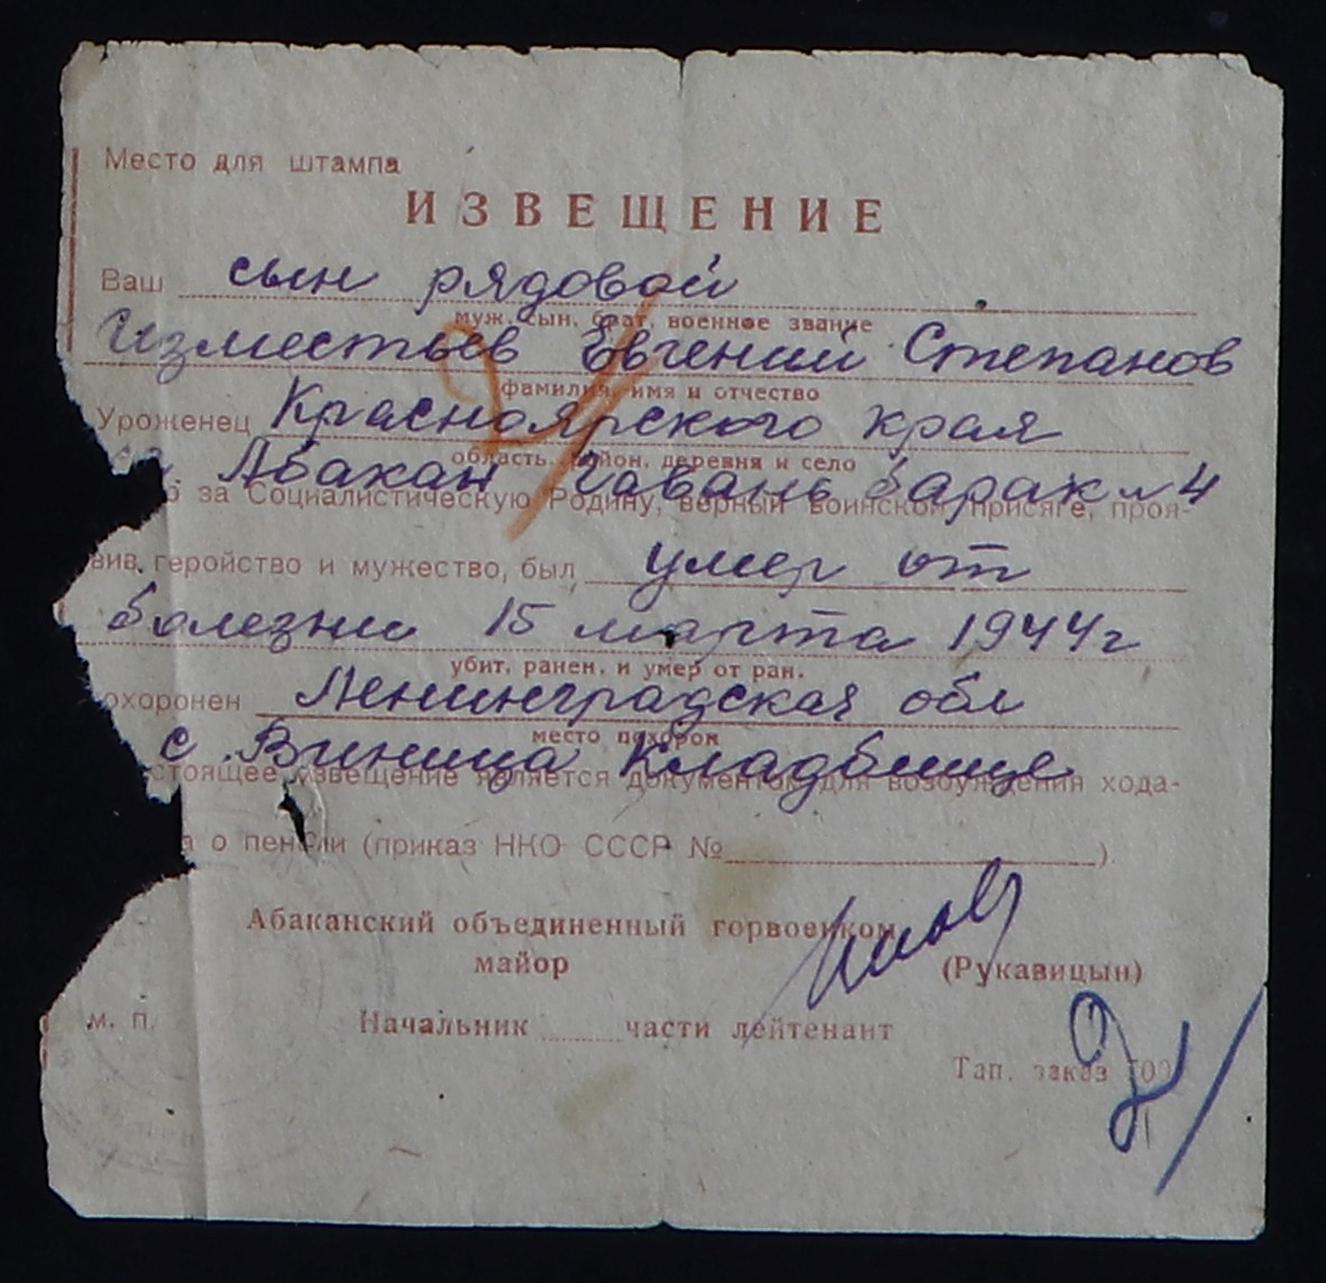 Место для штампа
ИЗВЕЩЕНИЕ
Ваш сын рядовой
муж, сын, брат, военное звание
Изместьев Евгений Степанов
фамилия, имя и отчество
Уроженец Красноярского края
область, район, деревня и село
Абакан Гавань барак № 4
за Социалистическую Родину, верный воинской присяге, проя-
вив геройство и мужество, был умер от
болезни 15 марта 1944 г
убит, ранен, и умер от ран.
охоронен Ленинградская обл
место похорон
с. Виница Кладбище
стоящее извещение является документом для возбуждения хода-
а о пенсии (приказ НКО СССР № ).
Абаканский объединенный горвоенком
майор (Рукавицын)
м. п. Начальник части лейтенант
Тап. заказ